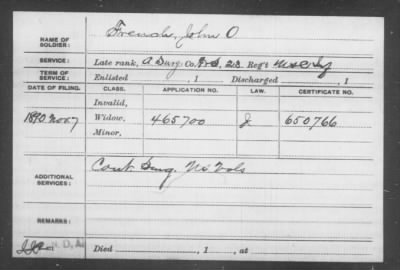 NAME OF SOLDIER: French, John O
SERVICE: Late rank, A Surg; Co. F&S, 23 Reg't U S C Inf
TERM OF SERVICE: Enlisted , 1 Discharged , 1
DATE OF FILING. CLASS. APPLICATION NO. LAW. CERTIFICATE NO.
Invalid,
1890 Nov 7 Widow, 465700 J 650766
Minor,
ADDITIONAL SERVICES: Cont Surg. Vols
REMARKS:
Died , 1 , at